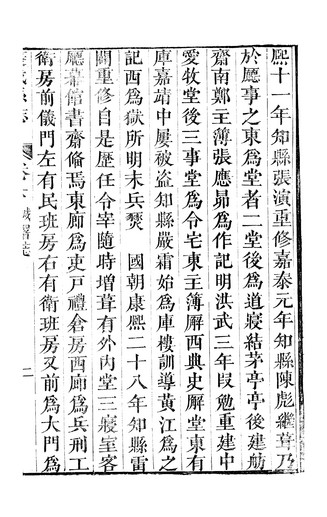 熙十一年知縣張濆重修嘉泰元年知縣陳彪繼葺乃
於廳事之東為堂者二堂後為道寢結茅亭亭後建舫
齋南鄭主簿張應昴為作記明洪武三年叚勉重建中
愛牧堂後三事堂為令宅東主簿廨西典史廨堂東有
庫嘉靖中屢被盜知縣嚴霜始為庫樓訓導黃江為之
記西為獄所明末兵燹　國朝康熙二十八年知縣雷
關重修自是歷任令宰隨時增葺有外內堂三寢室客
廳幕館書齋餘焉東廊為吏戶禮倉房西廊為兵刑工
衛房前儀門左有民班房右有衛班房又前為大門為
城署志
二